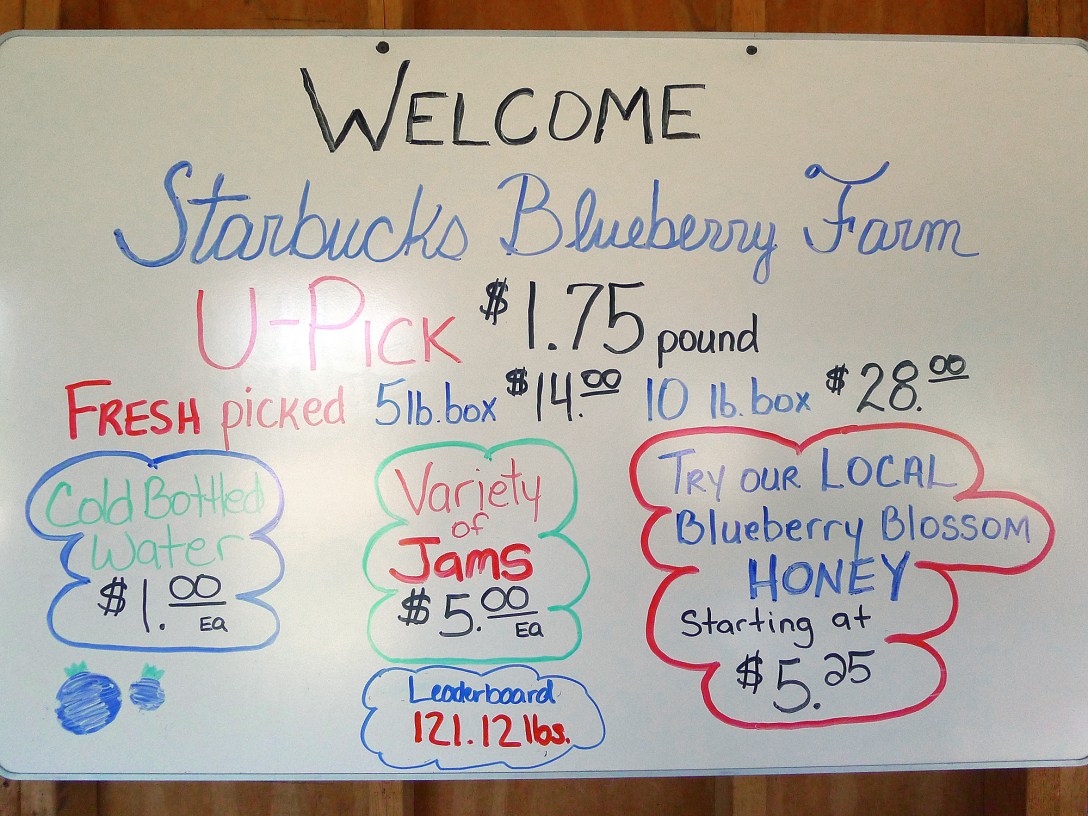 WELCOME
Starbucks Blueberry Farm
U-PICK $1.75 pound
FRESH picked 5lb.box $14.00 10 lb.box $28.00
Cold Bottled
Water
$1.00 Ea
Variety
of
Jams
$5.00 Ea
TRY OUR LOCAL
Blueberry BLOSSOM
HONEY
Starting at
$5.25
Leaderboard
121.12 lbs.